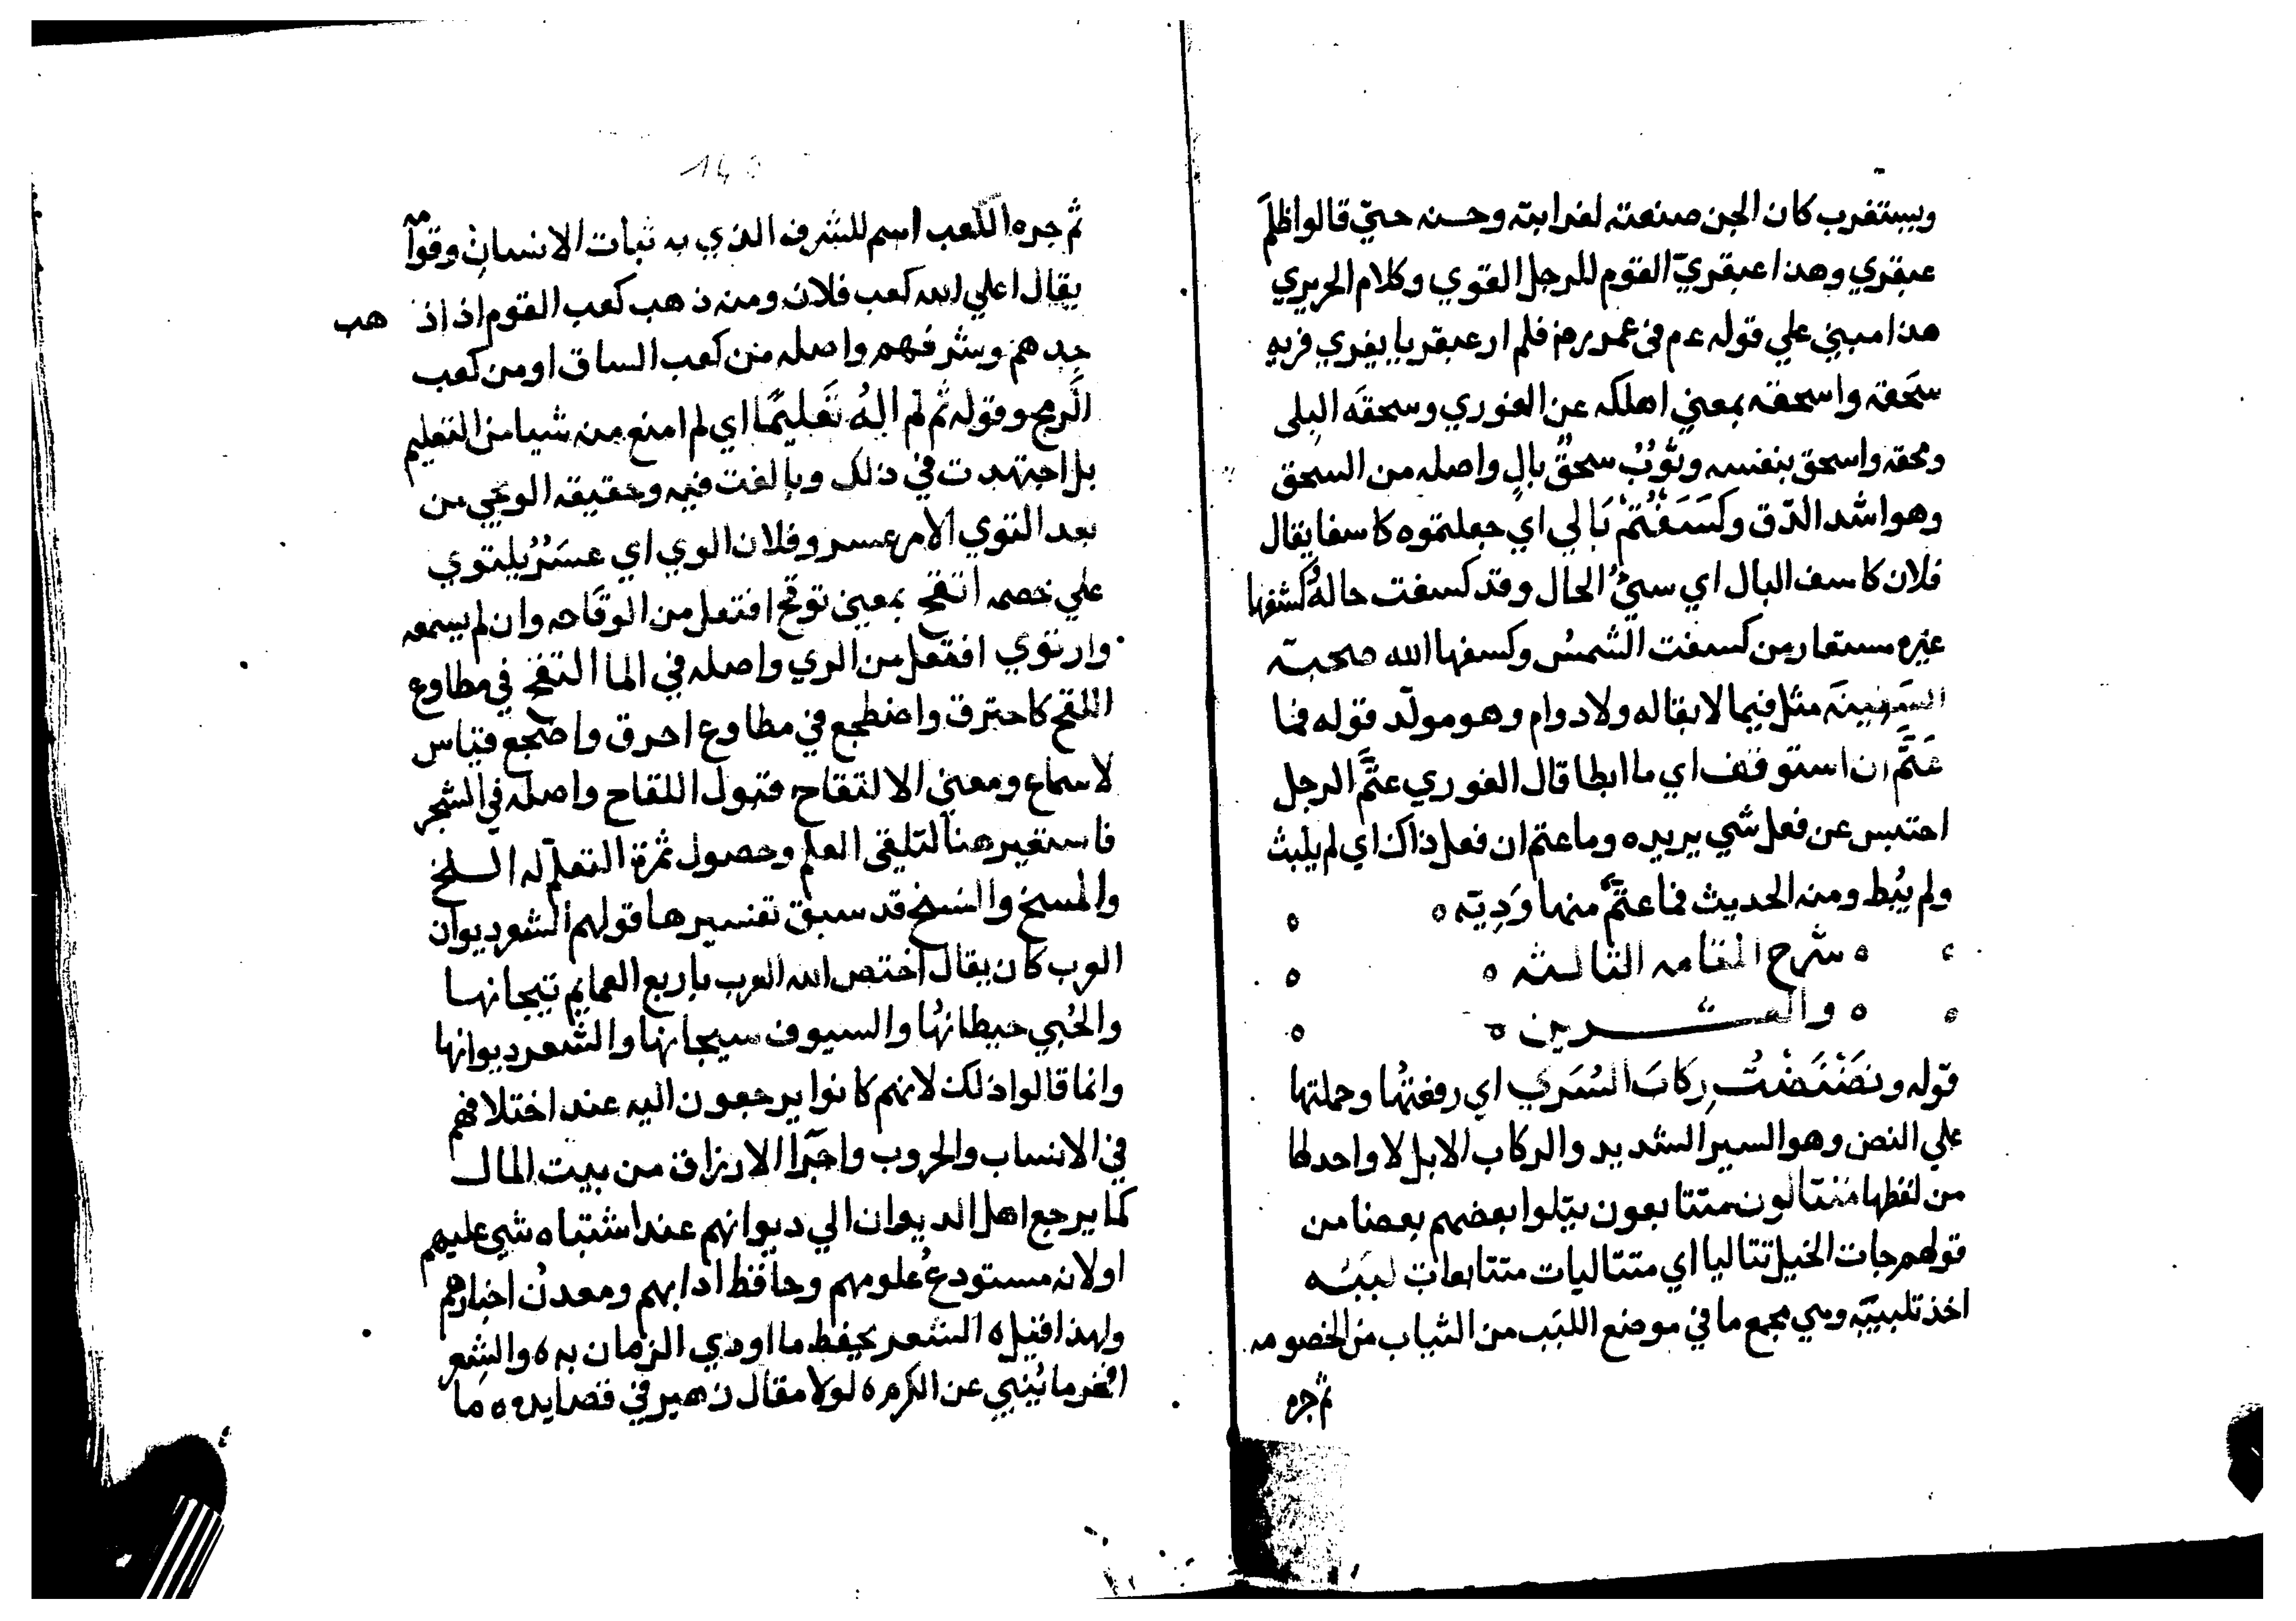 ويستغرب كان الجن صنعته لغرابته وحسنه حتي قالوا ظلم
عبقري وهذا عبقريّ القوم للرجل القوي وكلام الحريري
هذا مبني علي قوله عم في عمر رض فلم ار عبقريا يفري فريه
سحَقه واسحقه بمعني اهلكه عن الغوري وسحقَه البلى
ومحقه واسحق بنفسه وثوبٌ سحقٌ بالٍ واصله من السحق
وهو اشد الدّق وكَسَفْتُمْ بَالي اي جعلتموه كاسفا يقال
فلان كاسف البال اي سيّئُ الحال وقد كسفت حالهُ كسفها
غيره مستعار من كسفت الشمسُ وكسفها الله صحبة
السفينة مثل فيما لا بقا له ولا دوام وهو مولّد قوله فما
عَتَّمَ ان استوقف اي ما ابطا قال الغوري عتَّم الرجل
احتبس عن فعل شي يريده وما عتم ان فعل ذاك اي لم يلبث
ولم يُبط ومنه الحديث فما عتَّم منها وَدِيّه ه
ه شرح المقامه الثالثه ه
ه والعشرين ه
قوله ونَصَنَصْتُ رِكابَ السُرَي اي رفعتُها وحملتها
علي النص وهو السير الشديد والركاب الابل لا واحد لها
من لفظها متتالون متتابعون يتلوا بعضهم بعضا من
قولهم جات الخيل تتاليا اي متتاليات متتابعات لبَبَه
اخذ تلبيبَه وهي مجمع ما في موضع اللبَب من الثياب من الخصومه
ثم جره
ثم جره الكعب اسم للشرف الذي به ثبات الانسان وقوامه
يقال اعلي الله كعب فلان ومنه ذهب كعب القوم اذا ذهب
جدهم وشرفهم واصله من كعب الساق او من كعب
الرمح وقوله ثم لم الهُ تَعليمًا اي لم امنع منه شيا من التعليم
بل اجتهدت في ذلك وبالغت فيه وحقيقه الوجي من
بعد التوي الامر عسر وفلان الوي اي عسَرٌ يلتوي
علي خصمه اتقح بمعني توقح افتعل من الوقاحه وان لم يسمعه
وارتوي افتعل من الري واصله في الما التقح في مطاوع
اللقح كاحترق واضطجع في مطاوع احرق واضجع قياس
لا سماع ومعني الالتقاح قبول اللقاح واصله في الشجر
فاستعير هنا لتلقي العلم وحصول ثمرة التعلم له السلخ
والمسخ والنسخ قد سبق تفسيرها قولهم الشعر ديوان
العرب كان يقال اختص الله العرب باربع العمايم تيجانها
والحُبي حيطانهُا والسيوف سيجانها والشعر ديوانها
وانما قالوا ذلك لانهم كانوا يرجعون اليه عند اختلافهم
في الانساب والحروب واجرا الارزاق من بيت المال
كما يرجع اهل الديوان الي ديوانهم عند اشتباه شي عليهم
او لانه مستودع علومهم وحافظ ادابهم ومعدن اخبارهم
ولهذا قيل ه الشعر يحفظ ما اودي الزمان به ه والشعر
افخر ما يُنبي عن الكرم ه لولا مقال زهير في قصايده ه ما